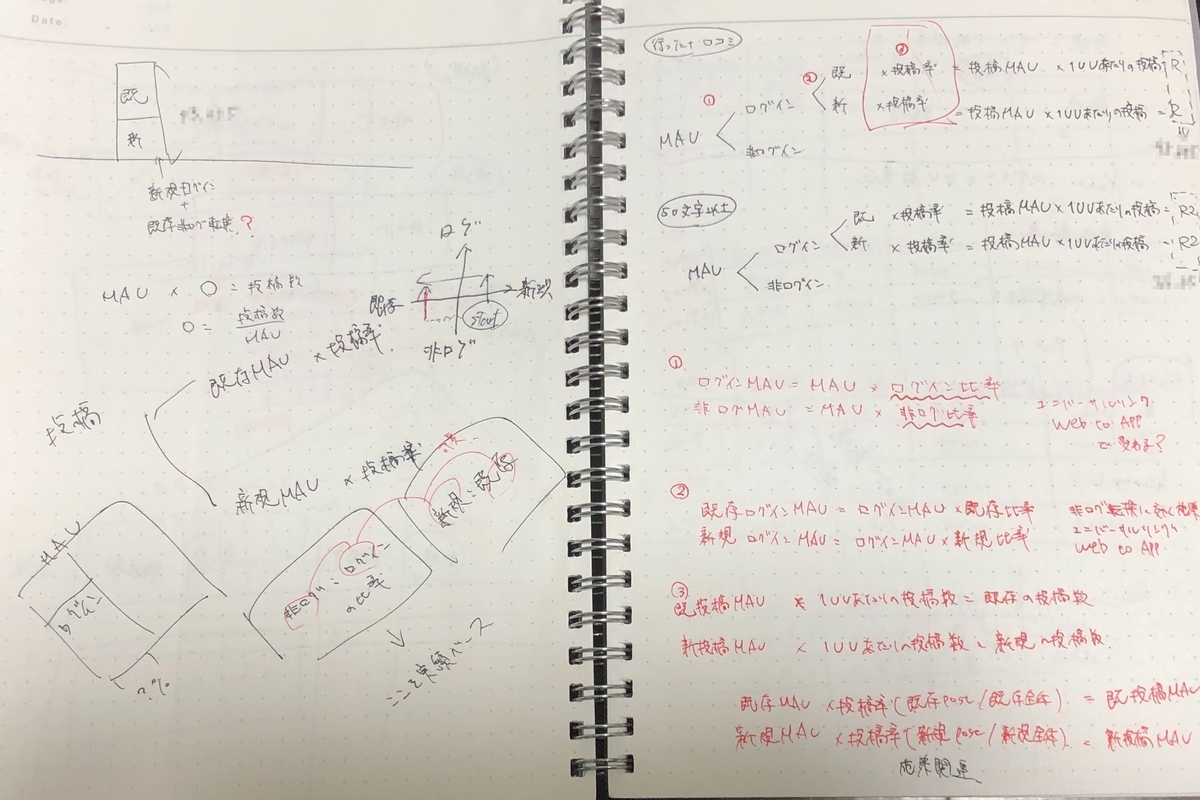 Date:
既
新
新規ログイン
+
既存非ログ転換?
MAU × ○ = 投稿数
○ = 投稿数
MAU
ログ
既存
新規
start
非ログ
投稿
既存MAU × 投稿率
新規MAU × 投稿率
MAU
ログイン
?%
非ログ:ログイン
の比率
新規:既存
ここを実績ベース
行った+口コミ
MAU
① ログイン
非ログイン
② 既 ③ ×投稿率 = 投稿MAU × 1UUあたりの投稿 R
新 ×投稿率 = 投稿MAU × 1UUあたりの投稿 = R
50文字以上
MAU
ログイン
非ログイン
既 ×投稿率 = 投稿MAU × 1UUあたりの投稿 = R2
新 ×投稿率 = 投稿MAU × 1UUあたりの投稿 = R2
①
ログインMAU = MAU × ログイン比率
非ログMAU = MAU × 非ログ比率
ユニバーサルリンク
Web to App
で変わる?
②
既存ログインMAU = ログインMAU × 既存比率
新規ログインMAU = ログインMAU × 新規比率
ユニバーサルリンク
Web to App
③
既投稿MAU × 1UUあたりの投稿数 = 既存の投稿数
新投稿MAU × 1UUあたりの投稿数 = 新規の投稿数
既存MAU × 投稿率(既存post/既存全体) = 既投稿MAU
新規MAU × 投稿率(新規post/新規全体) = 新投稿MAU
施策関連